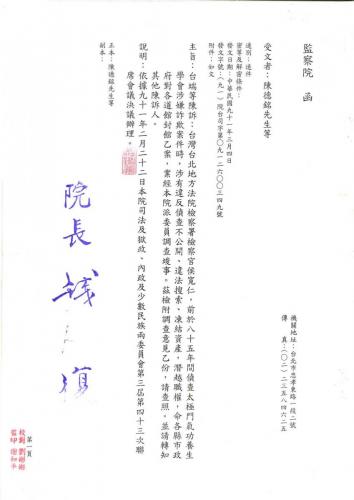 監察院　函
機關地址：台北市忠孝東路一段二號
傳　真：(〇二)二三五八四六二五
受文者：陳德銘先生等
速別：速件
密等及解密條件：
發文日期：中華民國九十一年三月四日
發文字號：(九一)院台司字第〇九一二六〇〇三四九號
附件：如文
主旨：台端等陳訴：台灣台北地方法院檢察署檢察官侯寬仁，前於八十五年間偵查太極門氣功養生
學會涉嫌詐欺案件時，涉有違反偵查不公開、違法搜索、凍結資產，潛越職權，命各縣市政
府對各道館封館乙案，業經本院派委員調查竣事。茲檢附調查意見乙份，請查照。並請轉知
其他陳訴人。
說明：依據九十一年二月二十二日本院司法及獄政、內政及少數民族兩委員會第三屆第四十三次聯
席會議決議辦理。
正本：陳德銘先生等
副本：
院長 錢 復
第一頁
校對 劉彬彬
監印